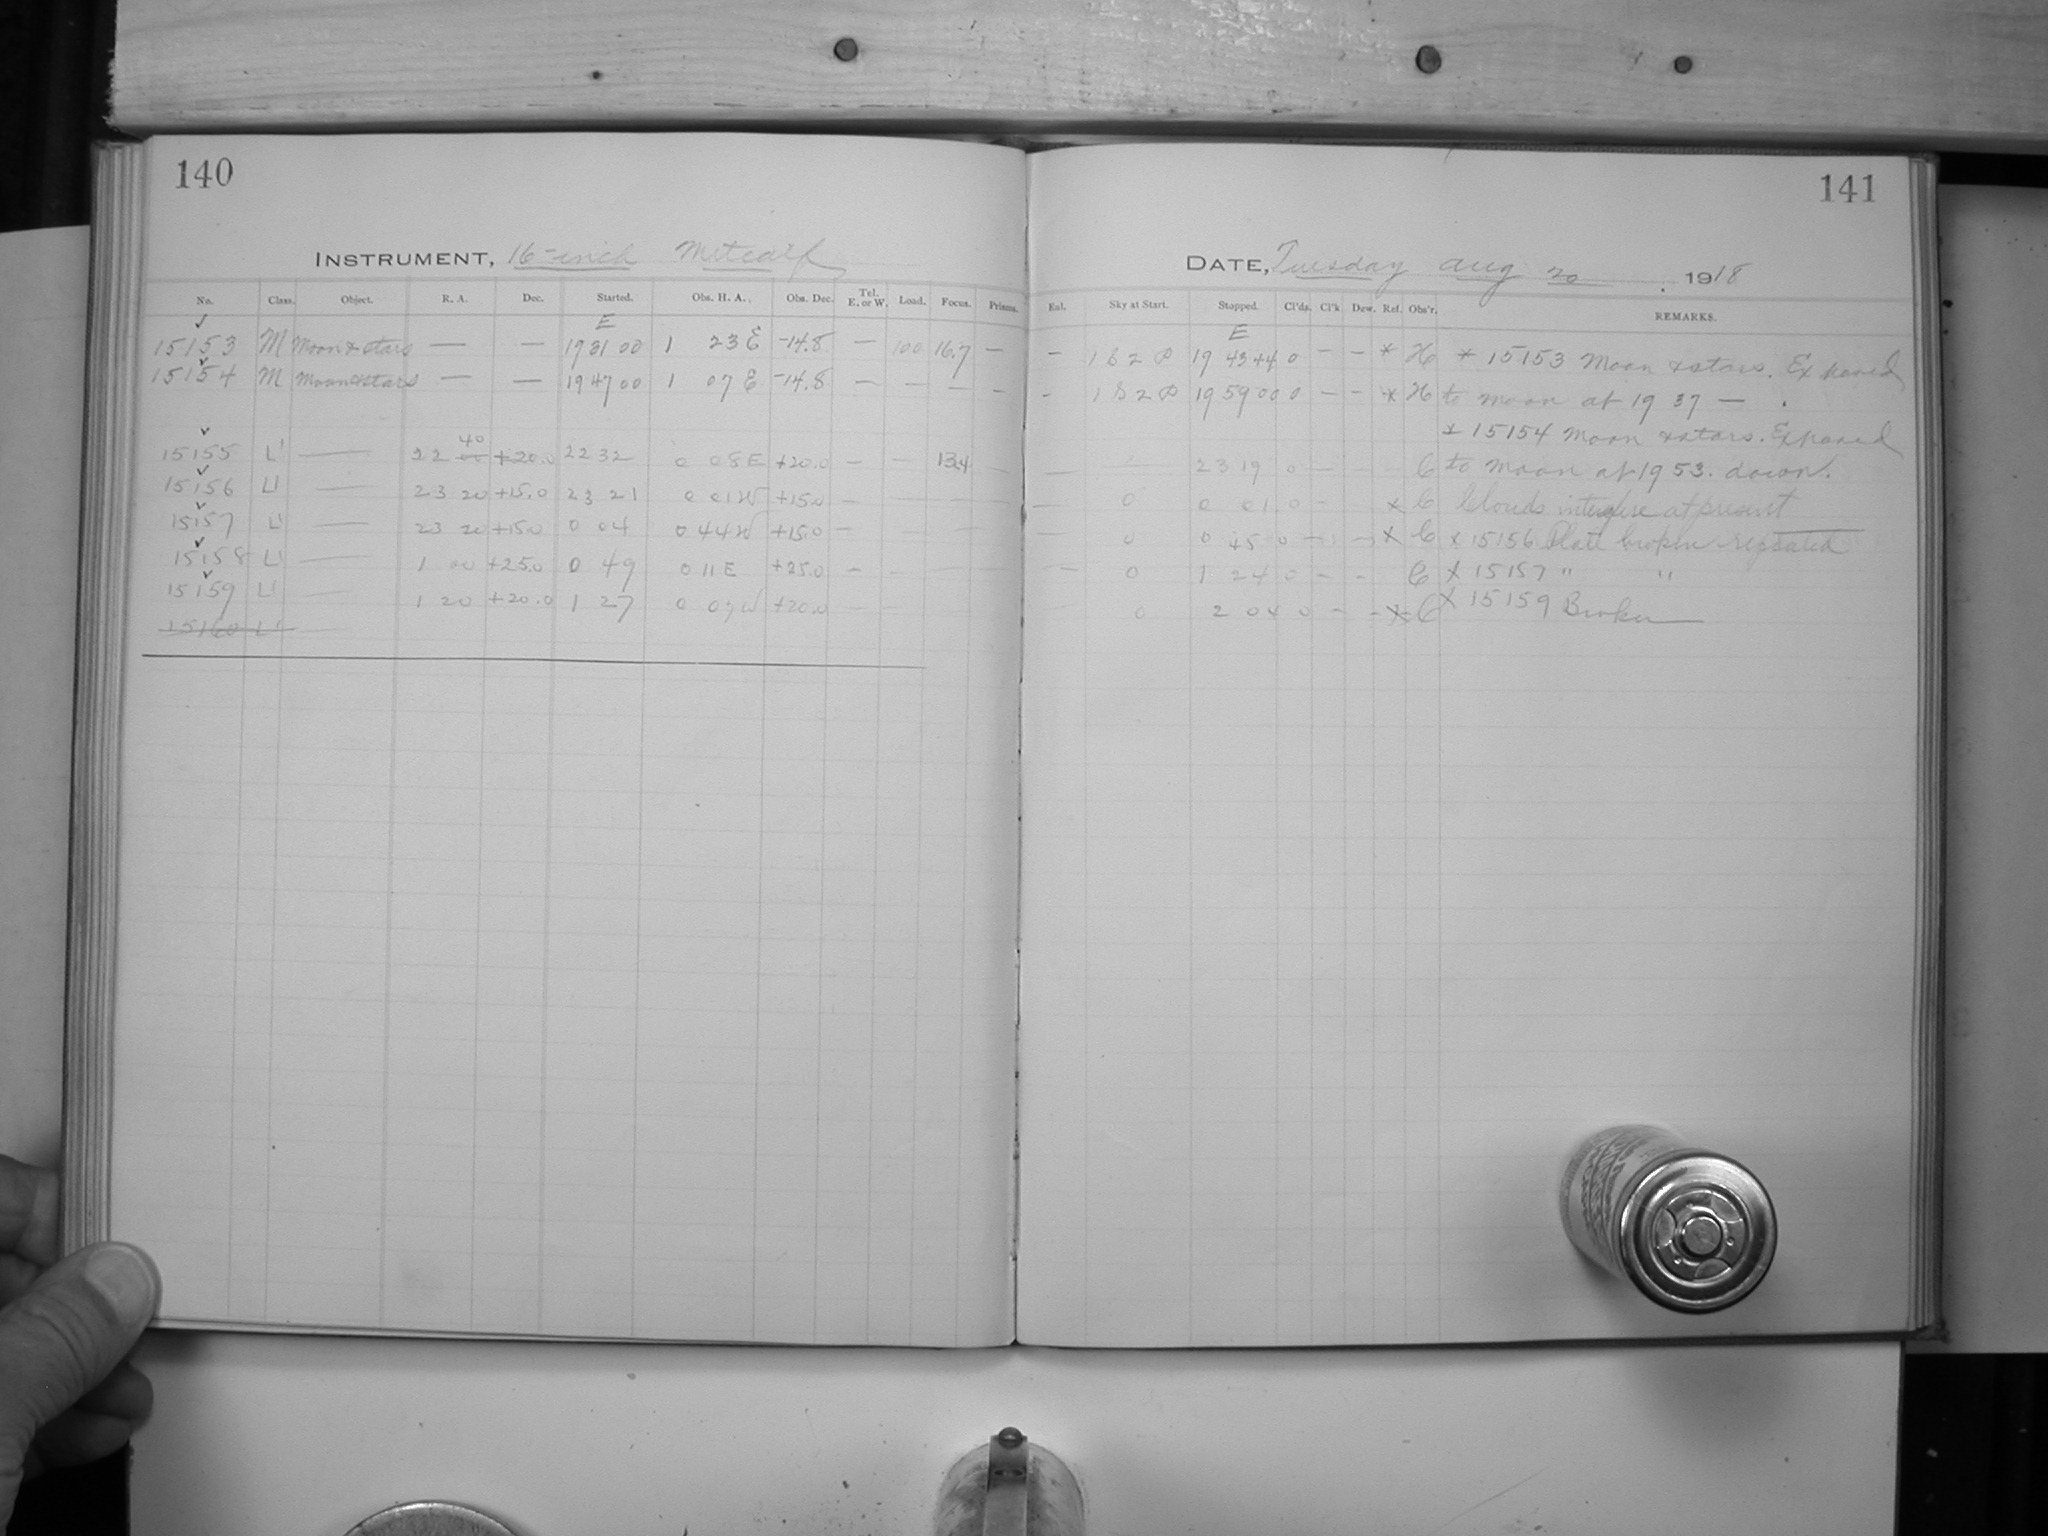 140
INSTRUMENT, 16-inch Metcalf
No. Class. Object. R. A. Dec. Started. Obs. H. A. Obs. Dec. Tel. E. or W. Load. Focus. Prisms.
E
15153 M Moon & stars — — 19 31 00 1 23 E -14.8 — 100 16.7 —
15154 M Moon & stars — — 19 47 00 1 07 E -14.8 — — — —
40
15155 L' — 22 00 +20.0 22 32 0 08 E +20.0 — — 13.4
15156 L' — 23 20 +15.0 23 21 0 01 W +15.0 —
15157 L' — 23 20 +15.0 0 04 0 44 W +15.0 —
15158 L' — 1 00 +25.0 0 49 0 11 E +25.0 — -
15159 L' — 1 20 +20.0 1 27 0 07 W +20.0 —
15160 L'
141
DATE, Tuesday Aug 20 . 1918
Sky at Start. Stopped. Cl'ds. Cl'k Dew. Ref. Obs'r. REMARKS.
E
- 1 S 2 P 19 43 44 0 — — * H * 15153 Moon & stars. Exposed
- 1 S 2 P 19 59 00 0 — — * H to moon at 19 37 — .
* 15154 Moon & stars. Exposed
— 23 19 0 — C to moon at 19 53. down.
0 0 01 0 - * C Clouds interfere at present
0 0 45 0 — - * C * 15156 Plate broken repeated
— 0 1 24 0 - - C * 15157 " "
0 2 04 0 - - * C * 15159 Broken